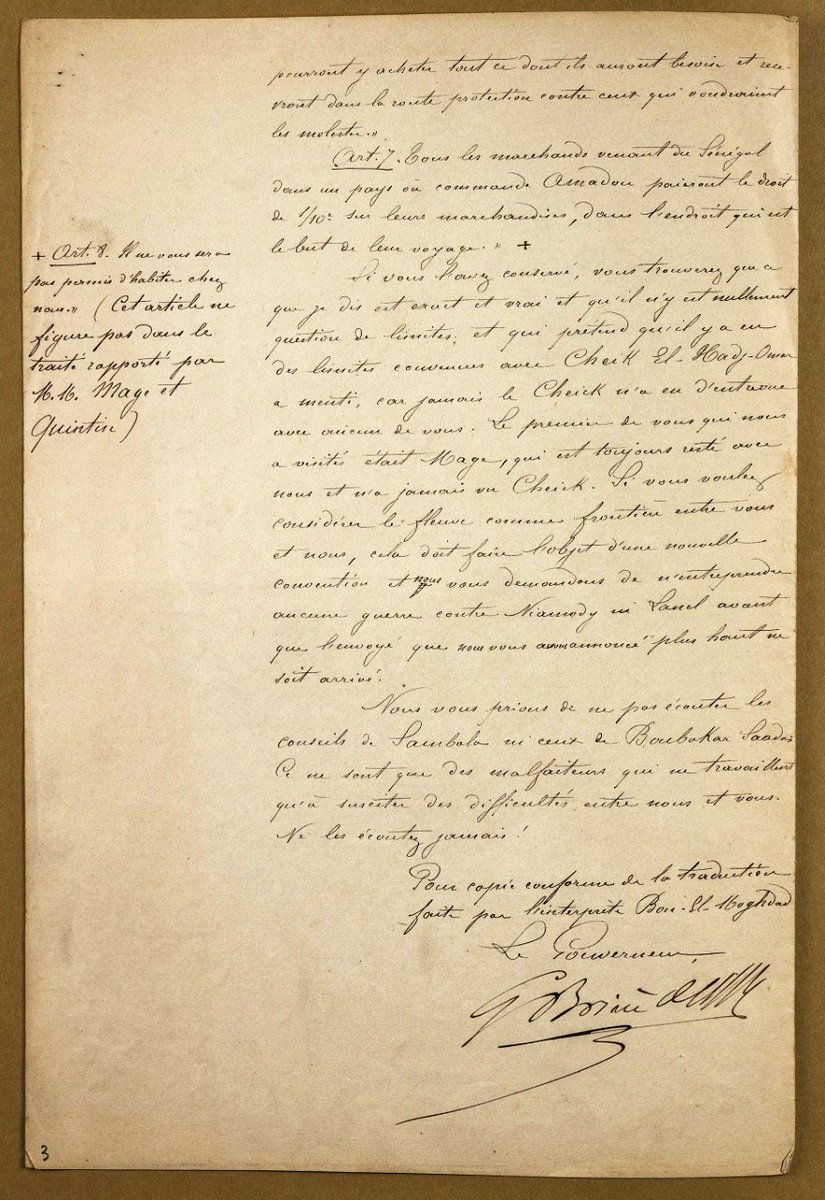 pourront y acheter tout ce dont ils auront besoin et rece-
vront dans la route protection contre ceux qui voudraient
les molester."
Art. 7. Tous les marchands venant du Sénégal
dans un pays où commande Amadou paieront le droit
de 1/10e sur leurs marchandises, dans l'endroit qui est
le but de leur voyage." +
+ Art. 8. Il ne vous sera
pas permis d'habiter chez
nous." (Cet article ne
figure pas dans le
traité rapporté par
M.M. Mage et
Quintin)
Si vous l'avez conservé, vous trouverez que ce
que je dis est exact et vrai et qu'il n'y est nullement
question de limites; et qui prétend qu'il y a eu
des limites convenues avec Cheik El-Hadj-Omar
a menti, car jamais le Cheick n'a eu d'entrevue
avec aucun de vous. Le premier de vous qui nous
a visités était Mage, qui est toujours resté avec
nous et n'a jamais vu Cheick. Si vous voulez
considérer le fleuve comme frontière entre vous
et nous, cela doit faire l'objet d'une nouvelle
convention et nous vous demandons de n'entreprendre
aucune guerre contre Niamody ni Lanel avant
que l'envoyé que nous vous avons annoncé plus haut ne
soit arrivé.
Nous vous prions de ne pas écouter les
conseils de Sambala ni ceux de Boubakar Saada.
Ce ne sont que des malfaiteurs qui ne travaillent
qu'à susciter des difficultés entre nous et vous.
Ne les écoutez jamais!
Pour copie conforme de la traduction
faite par l'interprète Bou-El-Moghdad
Le Gouverneur,
G Brière de l'Isle
3